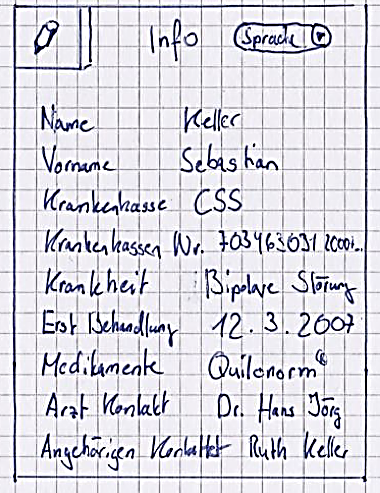 Info Sprache
Name Keller
Vorname Sebastian
Krankenkasse CSS
Krankenkassen Nr. 703463031 2000i...
Krankheit Bipolare Störung
Erst Behandlung 12.3.2007
Medikamente Quilonorm®
Arzt Kontakt Dr. Hans Jörg
Angehörigen Kontaktet Ruth Keller